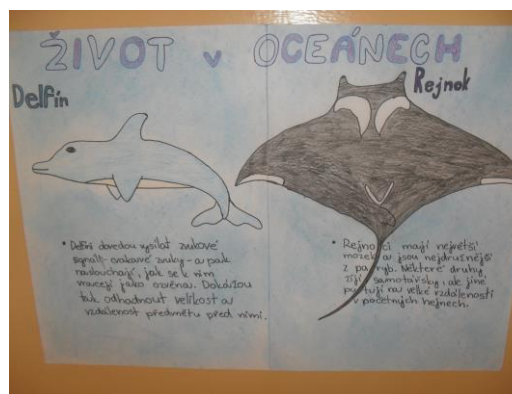 ŽIVOT v OCEÁNECH
Delfín
Rejnok
• Delfíni dovedou vysílat zvukové
signály - cvakavé zvuky - a pak
naslouchají, jak se k nim
vracejí jako ozvěna. Dokážou
tak odhadnout velikost a
vzdálenost předmětu před nimi.
• Rejnoci mají největší
mozek a jsou nejdružnější
z paryb. Některé druhy
žijí samotářsky, ale jiné
putují na velké vzdálenosti
v početných hejnech.